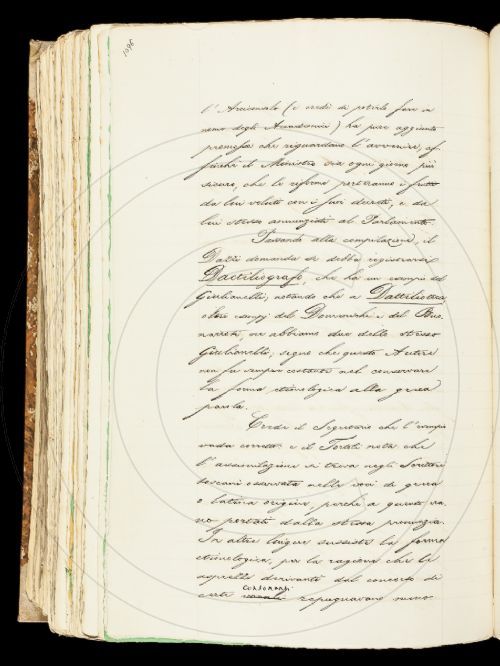 1096
l'Arciconsolo (e credè di poterlo fare in
nome degli Accademici) ha pure aggiunto
promesse che riguardano l'avvenire; af-
finchè il Ministro sia ogni giorno più
sicuro, che le riforme porteranno i frutti
da lui voluti con i suoi decreti, e da
lui stesso annunziati al Parlamento.
Passando alla compilazione, il
Dazzi domanda se debba registrarsi
Dactiliografo, che ha un esempio del
Giulianelli; notando che a Dattilioteca
oltre esempj del Domenichi e del Buo-
narroti, ne abbiamo due dello stesso
Giulianelli; segno che questo Autore
non fu sempre costante nel conservare
la forma etimologica alla greca
parola.
Crede il Segretario che l'esempio
vada corretto: e il Tortoli nota che
l'assimilazione si trova negli Scrittori
toscani osservata nelle voci di greca
o latina origine, perchè a questo va-
no portati dalla stessa pronunzia.
In altre lingue sussiste la forma
etimologica, per la ragione che le
asprezze derivanti dal concorso di
certe consonanti repugnavano meno